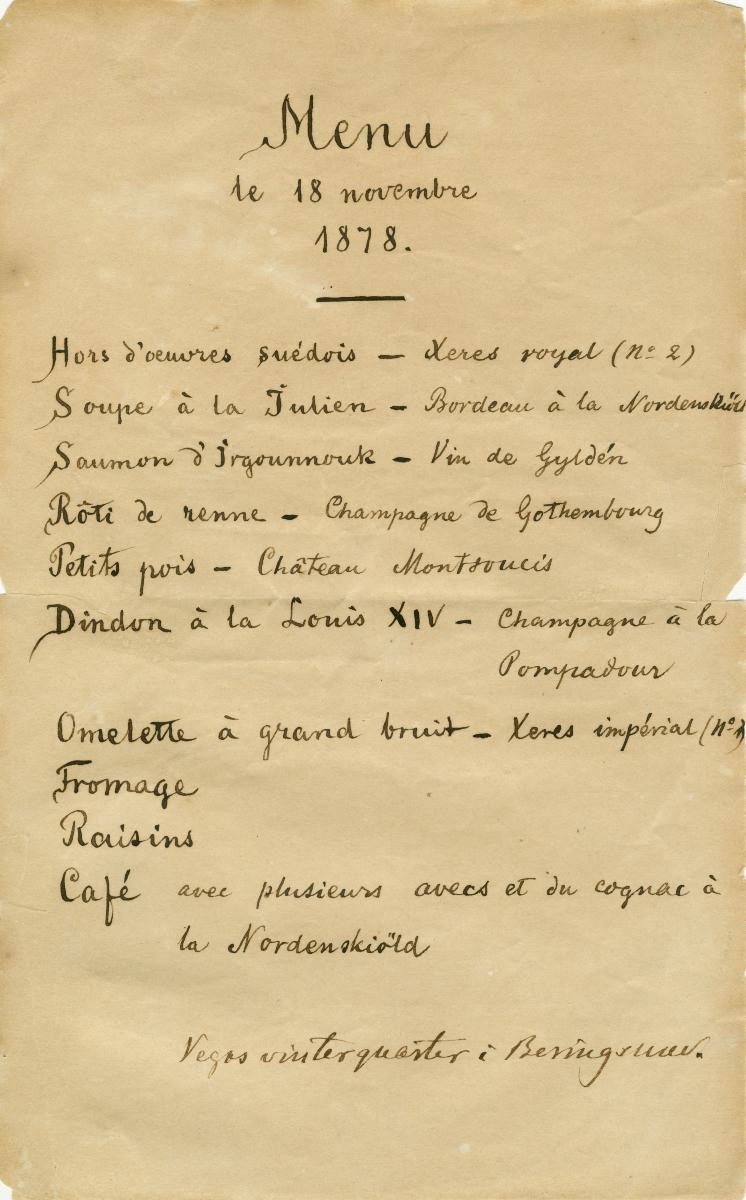 Menu
le 18 novembre
1878.
Hors d'oeuvres suédois — Xeres royal (No 2)
Soupe à la Julien — Bordeau à la Nordenskiöld
Saumon d'Irgounnouk — Vin de Gyldén
Rôti de renne — Champagne de Gothembourg
Petits pois — Château Montsoucis
Dindon à la Louis XIV — Champagne à la
Pompadour
Omelette à grand bruit — Xeres impérial (No 1)
Fromage
Raisins
Café avec plusieurs avecs et du cognac à
la Nordenskiöld
Vegas vinterquarter i Beringssund.